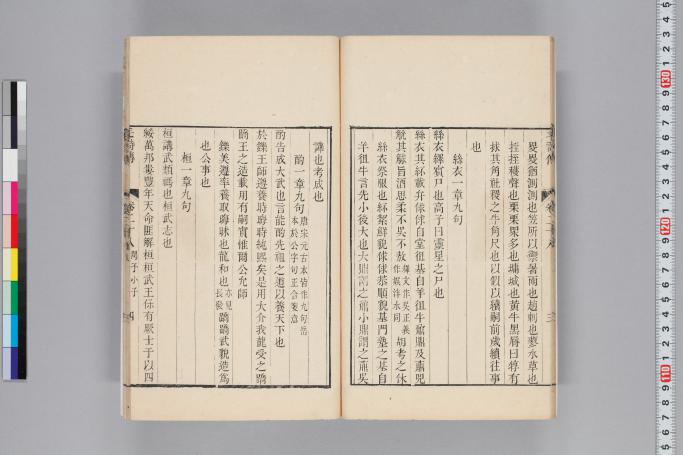 畟畟猶測測也笠所以禦暑雨也趙刺也蓼水草也
挃挃穫聲也栗栗眾多也墉城也黃牛黑脣曰犉有
捄其角社稷之牛角尺也以似以續嗣前歲續往事
也
絲衣一章九句
絲衣繹賓尸也高子曰靈星之尸也
絲衣其紑載弁俅俅自堂徂基自羊徂牛鼐鼎及鼒兕
觥其觩旨酒思柔不吳不敖胡考之休
絲衣祭服也紑絜鮮貌俅俅恭順貌基門塾之基自
羊徂牛言先小後大也大鼎謂之鼐小鼎謂之鼒吳
譁也考成也
酌一章九句
酌告成大武也言能酌先祖之道以養天下也
於鑠王師遵養時晦時純熙矣是用大介我龍受之蹻
蹻王之造載用有嗣實惟爾公允師
鑠美遵率養取晦昧也龍和也蹻蹻武貌造爲
也公事也
桓一章九句
桓講武類禡也桓武志也
綏萬邦婁豐年天命匪解桓桓武王保有厥士于以四